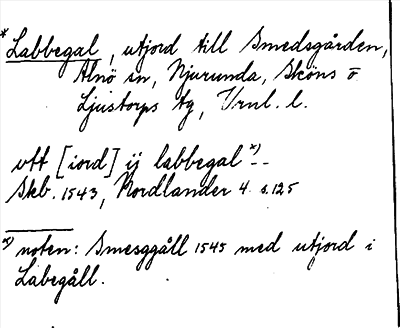 * Labbegal, utjord till Smedsgården,
Alnö sn, Njurunda, Sköns o
Ljustorps tg, Vrnl. l.
vtt [iord] ij labbegal *) --
Skb. 1543, Nordlander 4 s. 125
*) noten: Smesggåll 1545 med utjord i
Labegåll.